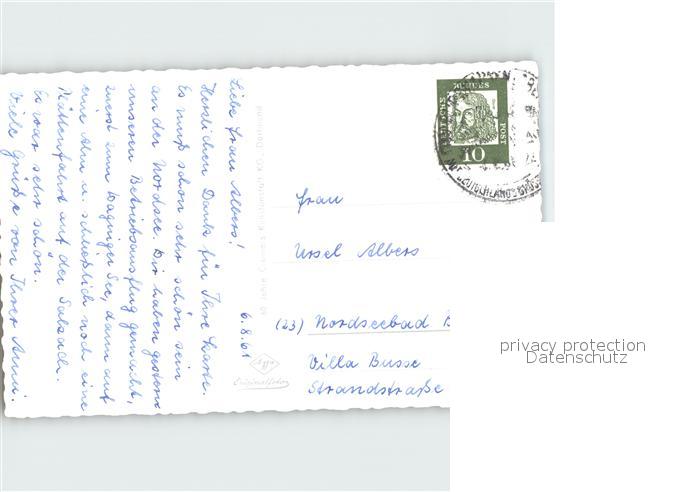 6.8.61
Liebe Frau Albers!
Herzlichen Dank für Ihre Karte.
Es muß schon sehr schön sein
an der Nordsee. Wir haben gestern
unseren Betriebsausflug gemacht,
zuerst zum Waginger See, dann auf
eine Alm u. schließlich noch eine
Plättenfahrt auf der Salzach.
Es war sehr schön.
Viele Grüße von Ihrer Anna.
60 Jahre Cramers Kunstanstalt KG., Dortmund
Agfa
Originalfoto
DEUTSCHE BUNDES POST
10
Frau
Ursel Albers
(23) Nordseebad B
Villa Busse
Strandstraße
privacy protection
Datenschutz